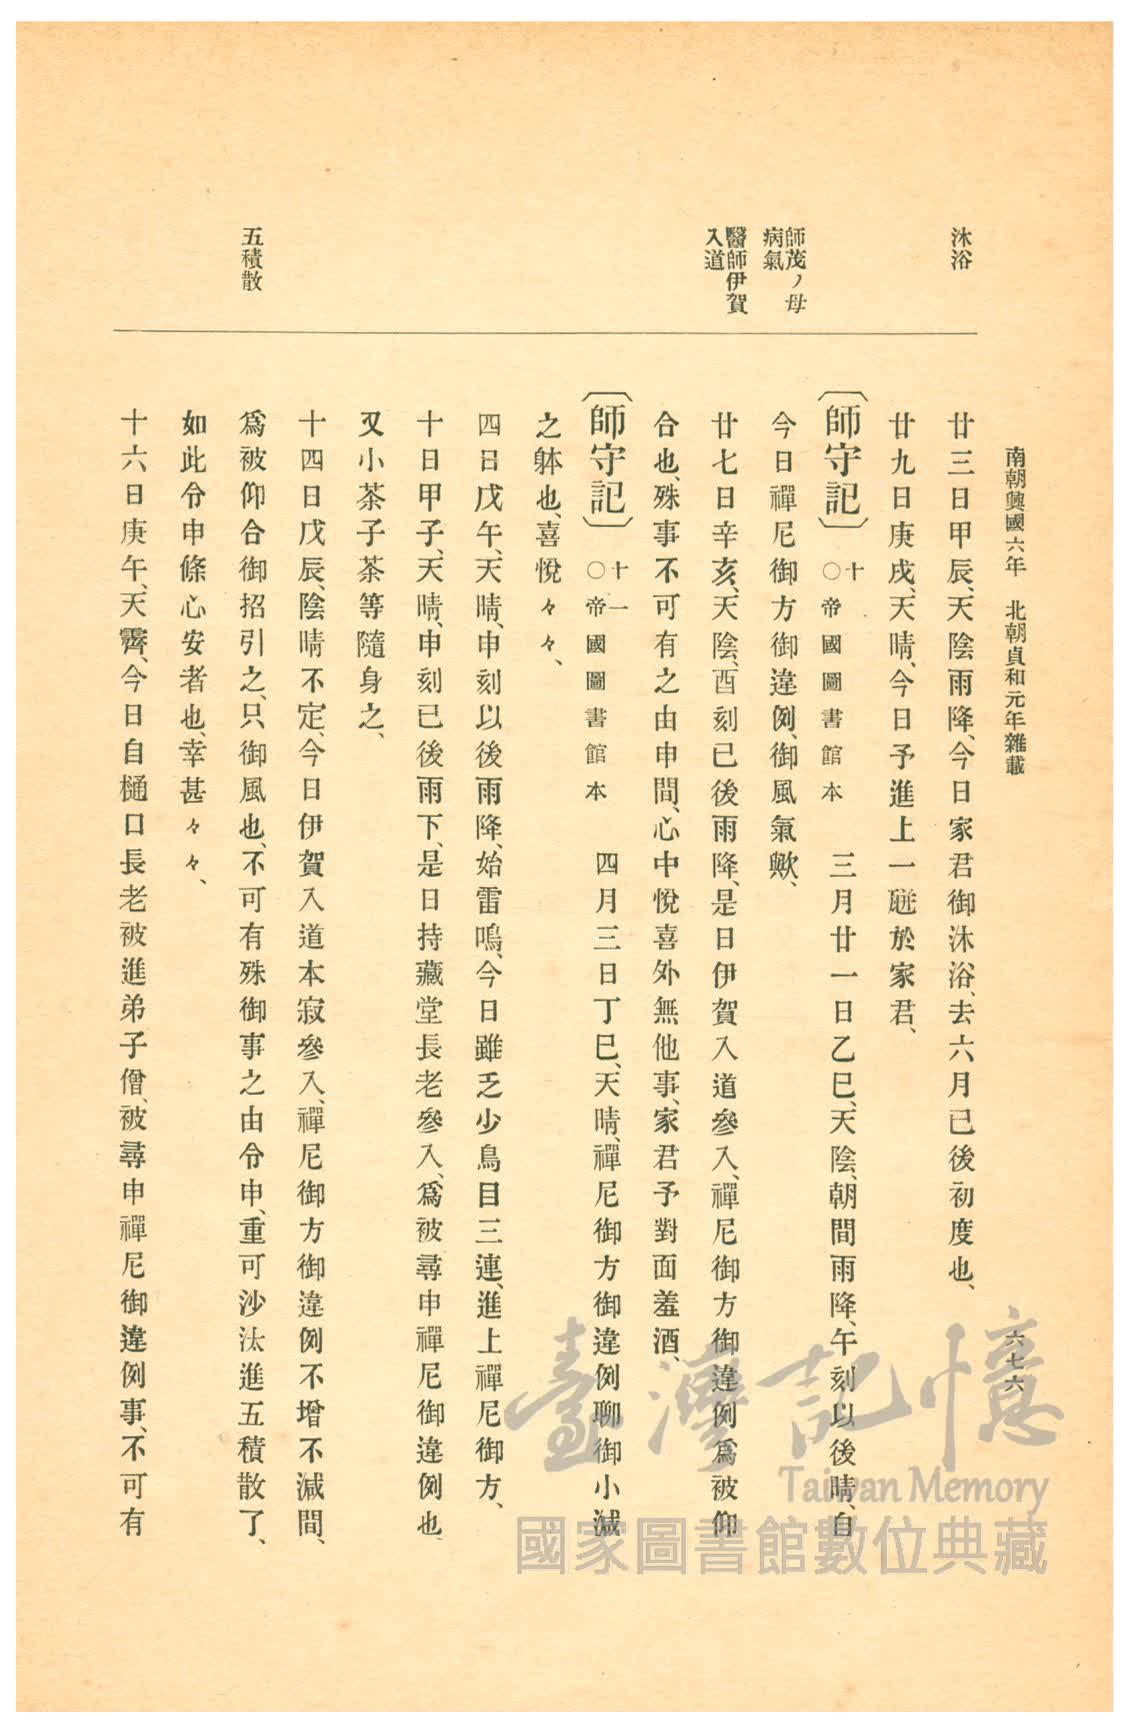 南朝興國六年　北朝貞和元年雜載
六七六
沐浴
師茂ノ母
病氣
醫師伊賀
入道
五積散
廿三日甲辰、天陰雨降、今日家君御沐浴、去六月已後初度也、
廿九日庚戌、天晴、今日予進上一瓞於家君、
〔師守記〕十　○帝國圖書館本　三月廿一日乙巳、天陰、朝間雨降、午刻以後晴、自
今日禪尼御方御違例、御風氣歟、
廿七日辛亥、天陰、酉刻已後雨降、是日伊賀入道參入、禪尼御方御違例爲被仰
合也、殊事不可有之由申間、心中悅喜外無他事、家君予對面羞酒、
〔師守記〕十一　○帝國圖書館本　四月三日丁巳、天晴、禪尼御方御違例聊御小減
之躰也、喜悅々々、
四日戊午、天晴、申刻以後雨降、始雷鳴、今日雖乏少鳥目三連、進上禪尼御方、
十日甲子、天晴、申刻已後雨下、是日持藏堂長老參入、爲被尋申禪尼御違例也
又小茶子茶等隨身之、
十四日戊辰、陰晴不定、今日伊賀入道本寂參入、禪尼御方御違例不增不減間、
爲被仰合御招引之、只御風也、不可有殊御事之由令申、重可沙汰進五積散了、
如此令申條心安者也、幸甚々々、
十六日庚午、天霽、今日自樋口長老被進弟子僧、被尋申禪尼御違例事、不可有
臺灣記憶
Taiwan Memory
國家圖書館數位典藏